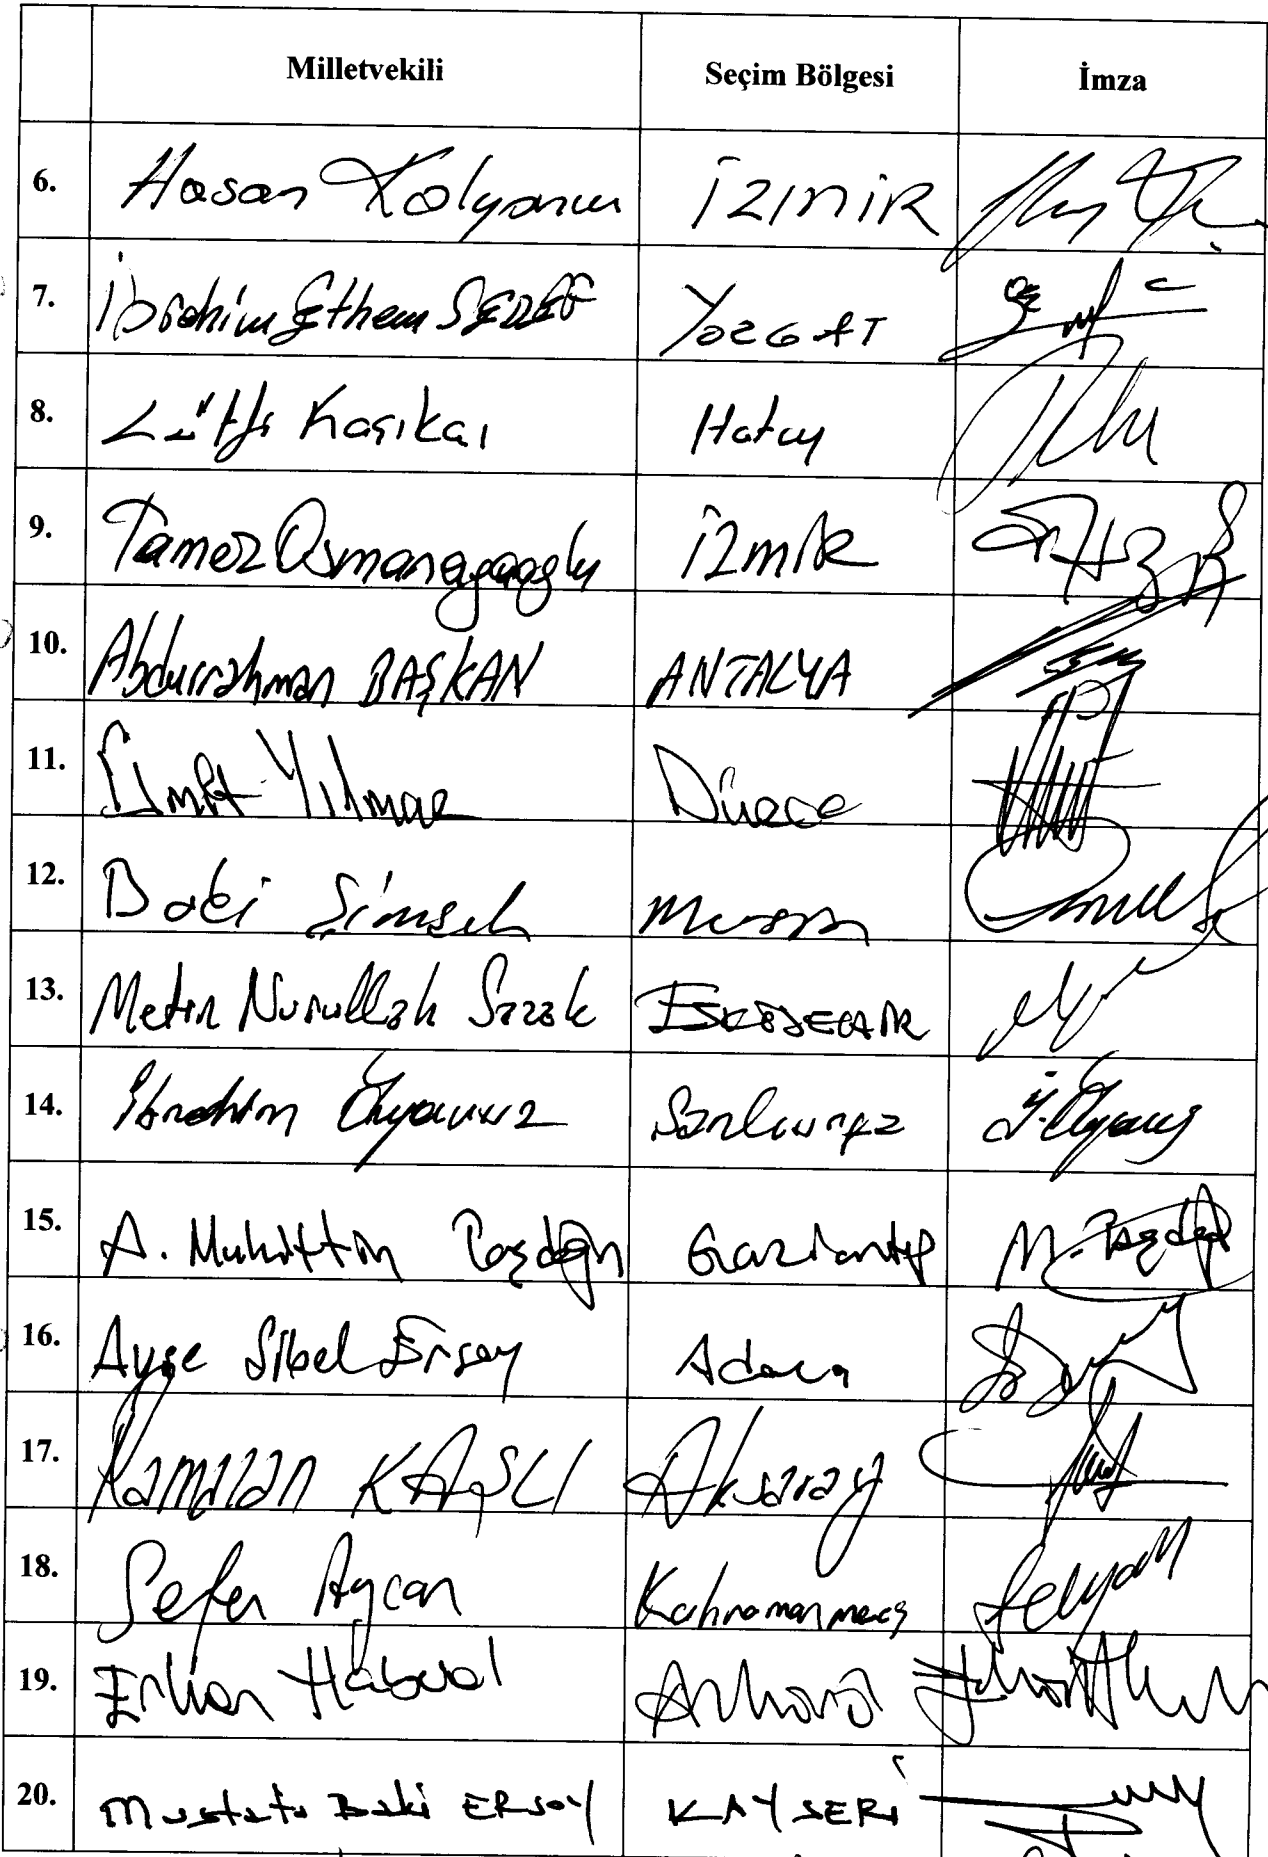 Milletvekili Seçim Bölgesi İmza
6. Hasan Kalyoncu İZMİR
7. İbrahim Ethem SEDEF YozGAT
8. Lütfi Kaşıkçı Hatay
9. Tamer Osmanağaoğlu İzmİR
10. Abdurrahman BAŞKAN ANTALYA
11. Ümit Yılmaz Düzce
12. Baki Şimşek Mersin
13. Metin Nurullah Sazak ESKİŞEHİR
14. İbrahim Özyavuz Şanlıurfa
15. A. Muhittin Taşdoğan Gaziantep M. Taşdoğan
16. Ayşe Sibel Ersoy Adana
17. Ramazan KAŞLI Aksaray
18. Sefer Aycan Kahramanmaraş
19. Erkan Haberal Ankara
20. Mustafa Baki ERSOY KAYSERİ